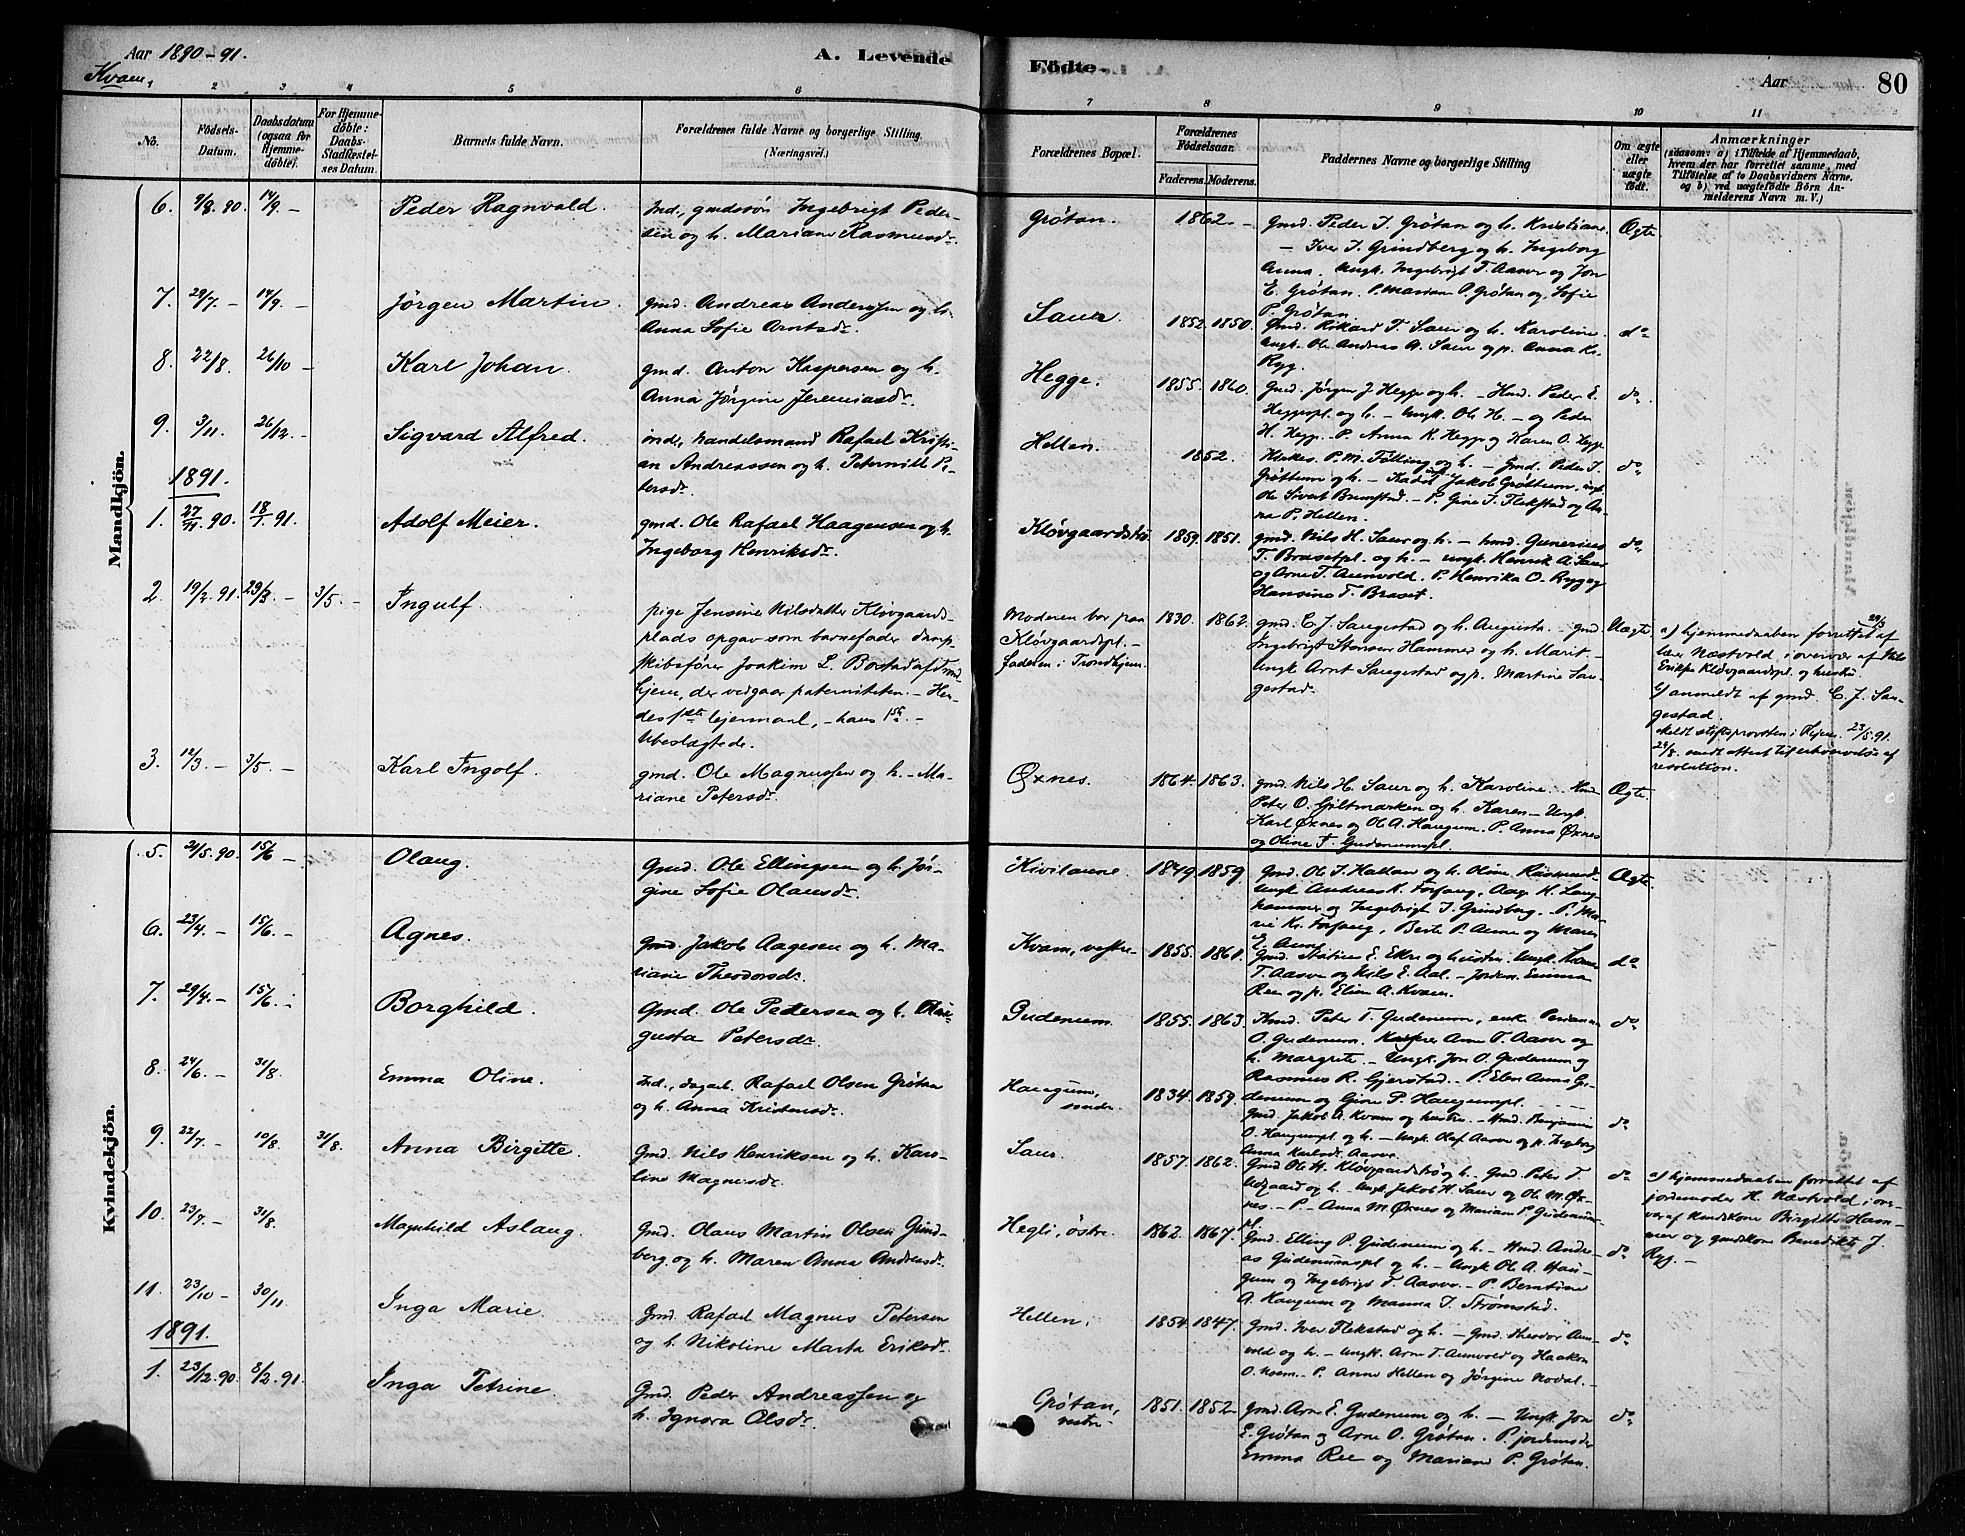 Aar 1890-91.
Kvam,
A. Levende
Födte.
Aar
80
1 2 3 4 5 6 7 8 9 10 11
No.
Födsels-Datum.
Daabsdatum (ogsaa for Hjemme-döbte).
For Hjemme-döbte: Daabs-Stadfæstel-ses Datum.
Barnets fulde Navn.
Forældrenes fulde Navne og borgerlige Stilling
(Næringsvei.)
Forældrenes Bopæl.
Forældrenes Födselsaar.
Faderens. Moderens.
Faddernes Navne og borgerlige Stilling
Om ægte eller uægte födt.
Anmærkninger
(saasom: a) i Tilfælde af Hjemmedaab,
hvem der har forrettet samme, med
Tilföielse af to Daabsvidners Navne.
og b) ved uægtefödte Börn An-
melderens Navn m. V.)
Mandkjön.
6. 9/8. 90. 14/9 – Peder Ragnvald.
Ind., gmdssön Ingebrigt Peder-
sen og h. Mariane Rasmusdr.
Grötan. 1862. –
Gmd. Peder I. Grötan og h. Kristiane.
– Iver I. Grindberg og h. Ingeborg
Anna. Ungk. Ingebrigt T. Aasve og Jon
E. Grötan. P. Marian P. Grötan og Sofie
P. Grötan.
Ægte.
7. 29/7. – 14/9. – Jörgen Martin.
gmd. Andreas Anderssen og h.
Anna Sofie Arntsdr.
Saur. 1852. 1850.
Gmd. Rikard T. Saur og h. Karoline
Ungk. Ole Andreas A. Saur og p. Anna K.
Ryg.
do
8. 22/8. 26/10 – Karl Johan.
gmd. Anton Kaspersen og h.
Anna Jörgine Jeremiasdr.
Hegge. 1855. 1860.
Gmd. Jörgen J. Hegge og h. – Hmd. Peder E.
Heggepl. og h. – Ungk. Ole H. – og Peder
H. Hegge. P. Anna K. Hegge og Karen O. Hegge
do
9. 3/11. 26/12. – Sigvard Alfred.
ind., handelsmand Rafael Kristi-
an Andreassen og h. Peternille Pe-
tersdr.
Hellem. 1852.
Kirkes. P. M. Fölling og h. – Gmd. Peder I.
Gröttum og h. – Jakob Gröttum, ungk.
Ole Sivert Brunstad. – P. Gine I. Flekstad og An-
na P. Hellem.
do
1891.
1. 27/11. 90. 18/1. 91. Adolf Meier.
gmd. Ole Rafael Haagensen og h.
Ingeborg Henriksdr.
Klövgaardströ 1859. 1851.
gmd. Nils H. Saur og h. – hmd. Gunerius
T. Brasetpl. og h. – ungk. Henrik A. Saur
og Arne T. Aunvold. P. Henrika O. Ryg og
Hansine T. Braset.
do
2. 19/2. 91. 29/3. – 3/5. – Ingulf.
pige Jensine Nilsdatter Klövgaards-
plads opgav som barnefader damp-
skibsförer Joakim L. Borstad af Trond-
hjem, der vedgaar paterniteten. – Hen-
des 1ste leiermaal, – hans 1ste. –
Ubeslægtede.
Moderen bor paa
Klövgaardspl. –
faderen i Trondhjem.
1830. 1862.
gmd. C. J. Saugestad og h. Augusta. – Gmd
Ingebrigt Hammer og h. Marit. –
Ungk. Arnt Saugestad og p. Martine Sau-
gestad.
Uægte
a) hjemmedaaben forrettet 29/3 af
lærer Næstvold i overvær af Nils
Eriksen Klövgaardspl. og hustru
b) anmeldt af gmd. C. J. Sau-
gestad.
meldt stiftsprovsten i Thjem. 23/5. 91.
resolution.
3. 12/3. – 3/5. – Karl Ingolf.
gmd. Ole Magnussen og h. Ma-
riane Petersdr.
Öxnes. 1864. 1863.
gmd. Nils H. Saur og h. Karoline. Hmd.
Peter O. Giltmarken og h. Karen – Ungk.
Karl Öxnes og Ole A. Haugum. P. Anna Öxnes
og Oline F. Gudenumspl.
Ægte.
Kvindekjön.
5. 21/5. 90. 15/6 – Olaug.
Gmd. Ole Ellingsen og h. Jör-
gine Sofie Olausdr.
Kivilaune 1849 1859.
Gmd. Ole I. Hallem og h. Oline Rasmusdr.
Ungk. Andreas K. Forfang, Aage K. Lang-
hammer og Ingebrigt I. Grindberg. – P. Ma-
rie Kr. Forfang, Berte P. Aune og Maren
E. Aune.
Ægte.
6. 23/4. – 15/6. – Agnes.
Gmd. Jakob Aagesen og h. Ma-
riane Theodorsdr.
Kvam, vestre 1855. 1861.
T. Aasve og Nils E. Aal. – Jordm. Emma
Ree og p. Elise A. Kvam.
do
7. 29/4. – 15/6. – Borghild.
Gmd. Ole Pedersen og h. Au-
gusta Petersdr.
Gudenum 1855. 1863.
Hmd. Peter T. Gudenum, enke
O. Gudenum. Arne T. Aasve og
h. Margrete. – Ungk. Jon O. Gudenum og
Rasmus R. Gjerstad. – P. Elen Anna Gu-
denum og Gine P. Haugumpl.
do
8. 24/6. – 31/8. Emma Oline.
Ind., dagarb. Rafael Olsen Grötan
og h. Anna Kristensdr.
Haugum,
söndre. 1834. 1859.
Gmd. Jakob A. Kvam og hustru. – Hmd. Benjamin
O. Haugumpl. og h. – Ungk. Olaf Aasve og p. Ingeborg
Anna Karlsdr. Aasve.
do
9. 22/7. – 10/8. 31/8. Anna Birgitte.
Gmd. Nils Henriksen og h. Karo-
line Magnusdr.
Saur. 1857. 1862.
Gmd Ole H. Klövgaardströ og h. Gmd. Peter T.
Udgaard og h. – Ungk. Jakob H. Saur og Ole M. Öx-
nes. – P. – Anna M. Öxnes og Mariane P. Gudenum-
pl.
do
a) hjemmedaaben forrettet af
jordemoder H. Næstvold i over-
vær af Birgitte Ham-
mer og gmdskone Benedikte J.
Ryg. –
10. 23/7. – 31/8. Magnhild Aslaug.
Gmd. Olaus Martin Olsen Grind-
berg og h. Maren Anna Andreasdr.
Hegli, östre. 1862. 1867.
Gmd. Elling P. Gudenum og h. – Hmd. Andre-
as Gudenumspl og h. – Ungk. Ole A. Hau-
gum og Ingebrigt T. Aasve. – P. Berntine
A. Haugum og Manna I. Strömstad.
do
11. 23/10 – 30/11. Inga Marie.
Gmd. Rafael Magnus Petersen
og h. Nikoline Marta Eriksdr.
Hellem. 1854. 1847.
Gmd. Iver Flekstad og h. – Gmd. Theodor Aun-
vold og h. – Ungk. Arne T. Aunvold og Haakon
O. Noem. – P. Anne Hellem og Jörgine Nodal. –
do
1891.
1. 23/12. 90. 8/2. 91. Inga Petrine
Gmd. Peder Andreassen og
h. Ignora Olsdr.
Grötan,
vestre 1851. 1852.
Gmd. Arne E. Gudenum og h. – Ungk. Jon
E. Grötan og Arne O. Grötan. P. jordemoder
Emma Ree og Mariane P. Grötan.
do